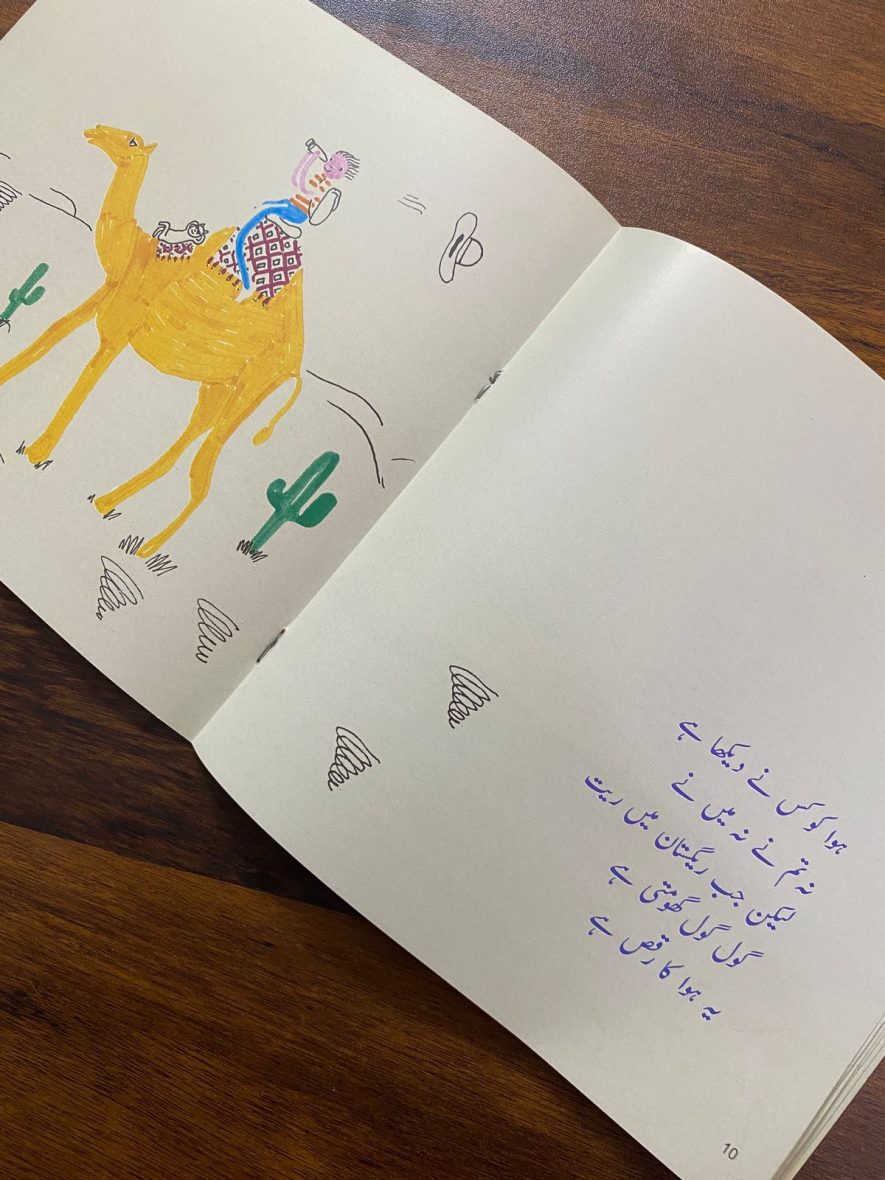 ہوا کو کس نے دیکھا ہے
نہ تم نے نہ میں نے
لیکن جب ریگستان میں ریت
گول گول گھومتی ہے
یہ ہوا کا رقص ہے
10